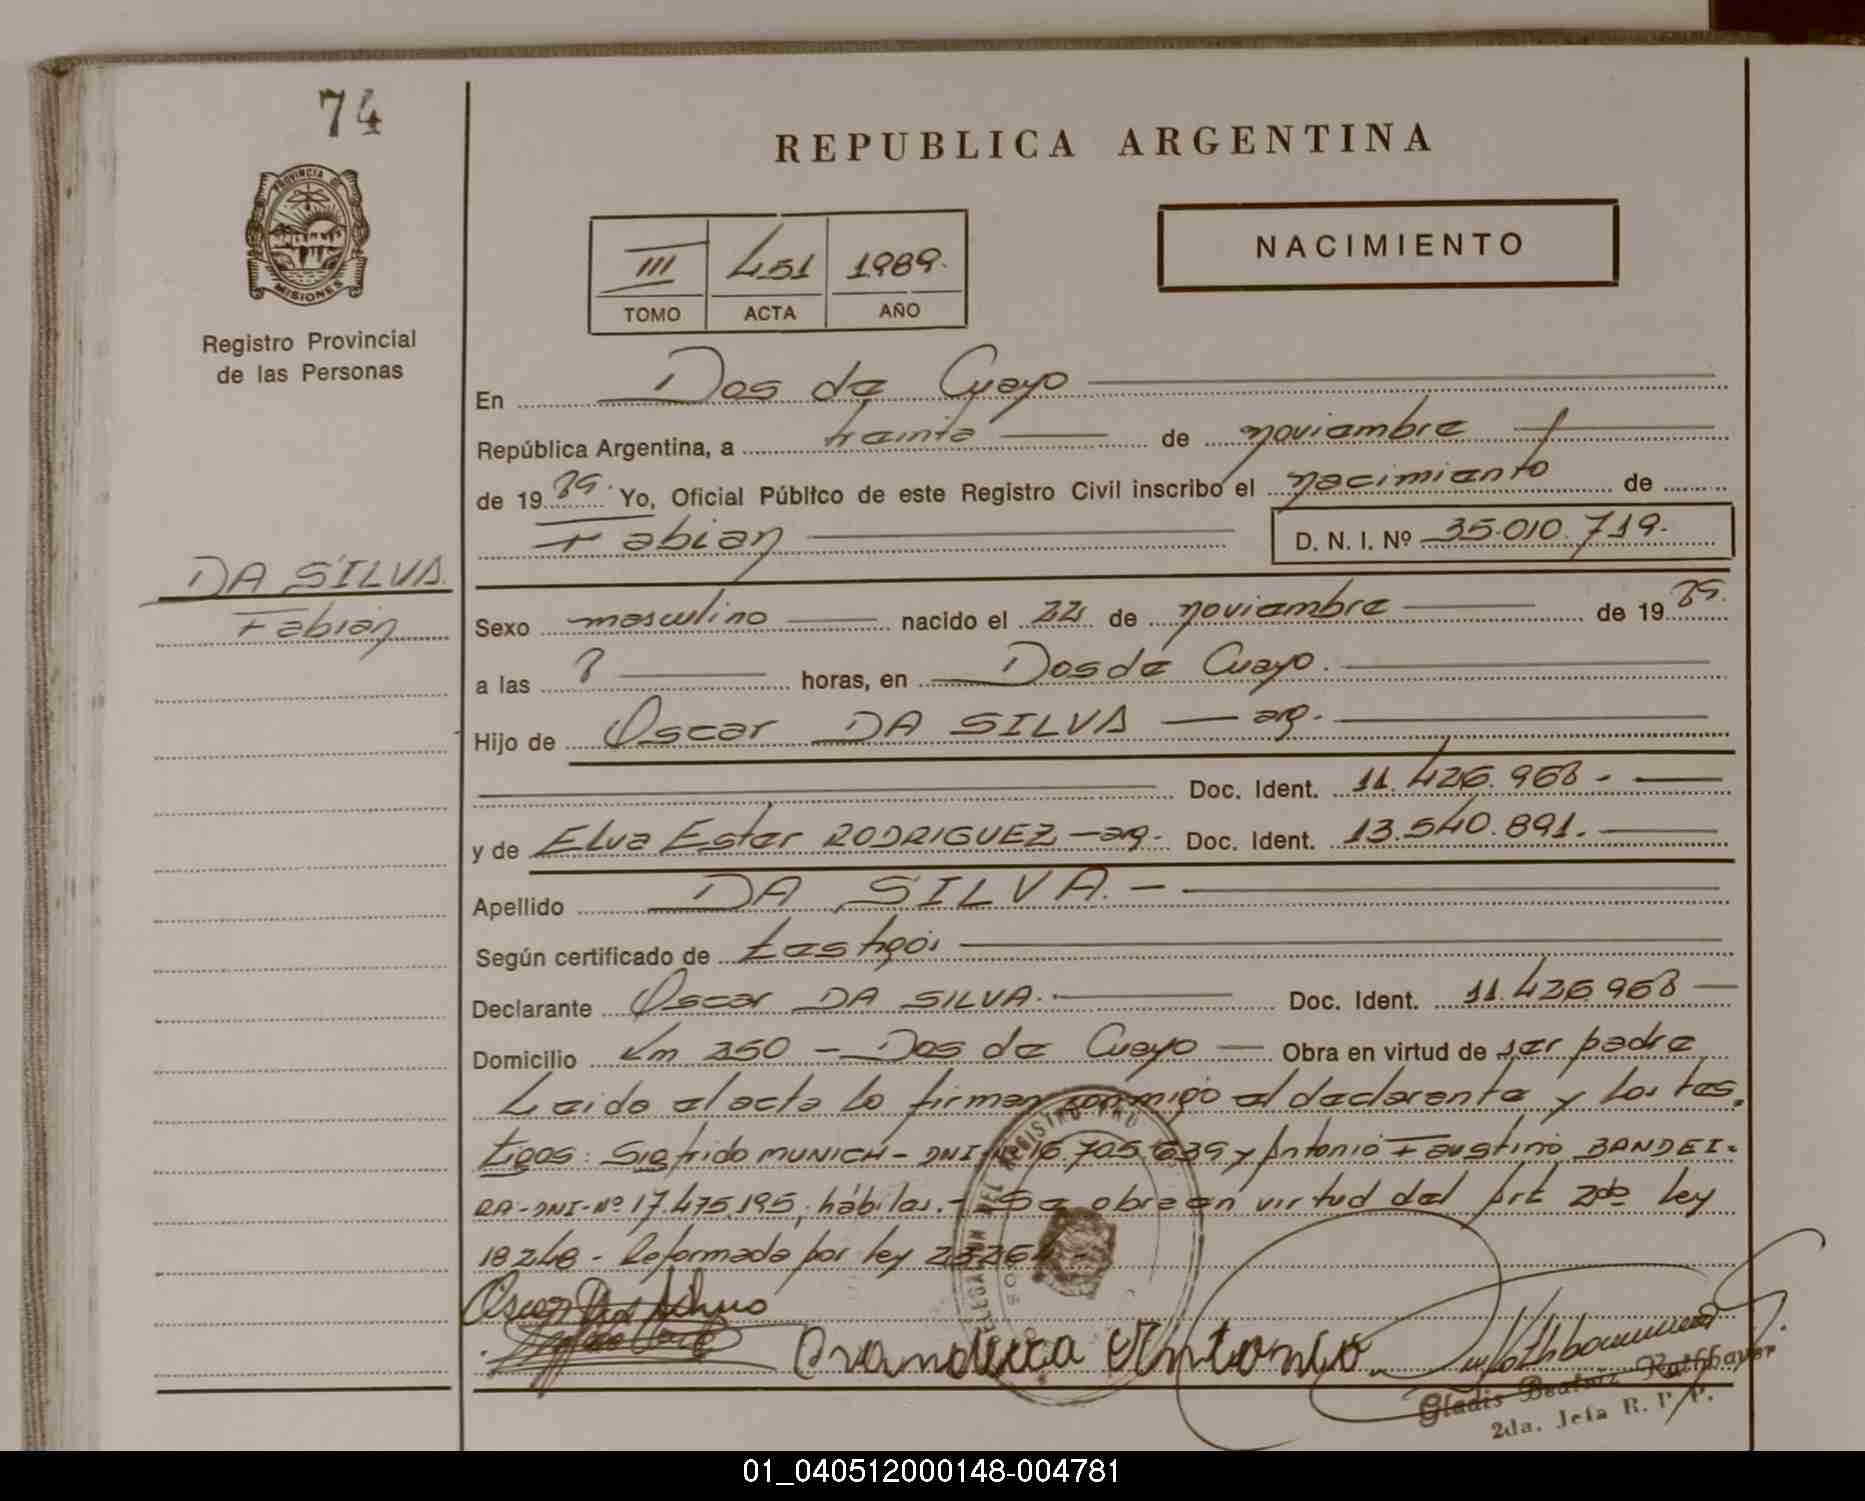 74
PROVINCIA DE
MISIONES
Registro Provincial
de las Personas
DA SILVA
Fabian
REPUBLICA ARGENTINA
III 451 1989.
TOMO ACTA AÑO
NACIMIENTO
En Dos de Mayo
República Argentina, a treinta de noviembre
de 1989. Yo, Oficial Público de este Registro Civil inscribo el nacimiento de
Fabian D. N. I. Nº 35.010.719.
Sexo masculino nacido el 22 de noviembre de 1989.
a las 8 horas, en Dos de Mayo.
Hijo de Oscar DA SILVA — arg.
Doc. Ident. 11.426.968 -
y de Elva Ester RODRIGUEZ - arg. Doc. Ident. 13.540.891.
Apellido DA SILVA. -
Según certificado de testigos
Declarante Oscar DA SILVA. Doc. Ident. 11.426.968
Domicilio Km 250 - Dos de Mayo Obra en virtud de ser padre
Leido el acta lo firman conmigo el declarante y los tes-
tigos: Sigfrido MUNICH - DNI-Nº 16.705.639 y Antonio Faustino BANDEI-
RA-DNI-Nº 17.475.195, hábiles. - Se obra en virtud del Art 2do ley
18248 - Reformada por ley 23264 -
REGISTRO
Antonio
Gladis Beatriz Rathhauer
2da. Jefa R. P. P.
01_040512000148-004781